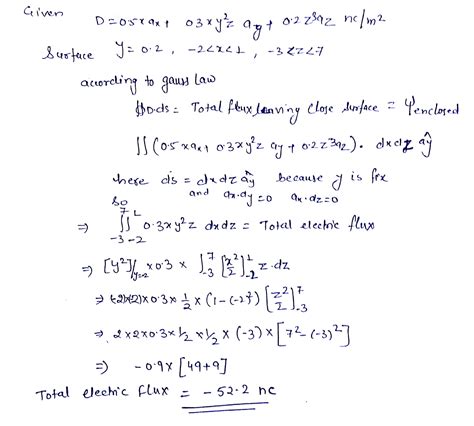 Given
D = 0.5x ax + 0.3xy²z ay + 0.2z³az nc/m²
Surface y = 0.2, -2<x<1, -3<z<7
according to gauss law
∯D.ds = Total flux leaving close surface = ψenclosed
∬(0.5x ax + 0.3xy²z ay + 0.2z³az). dxdz aŷ
here ds = dxdz aŷ because y is fix
and ax.ay=0 ax.az=0
So
⇒ ∫₋₃⁷∫₋₂¹ 0.3xy²z dxdz = Total electric flux
⇒ [y²]y=2 x0.3 x ∫₋₃⁷ [x²/2]₋₂¹ z.dz
⇒ (2)(2)x0.3x 1/2 x (1-(-2)²) [z²/2]₋₃⁷
⇒ 2x2x0.3x 1/2 x 1/2 x (-3) x [7²-(-3)²]
⇒ -0.9x [49+9]
Total electric flux = -52.2 nc